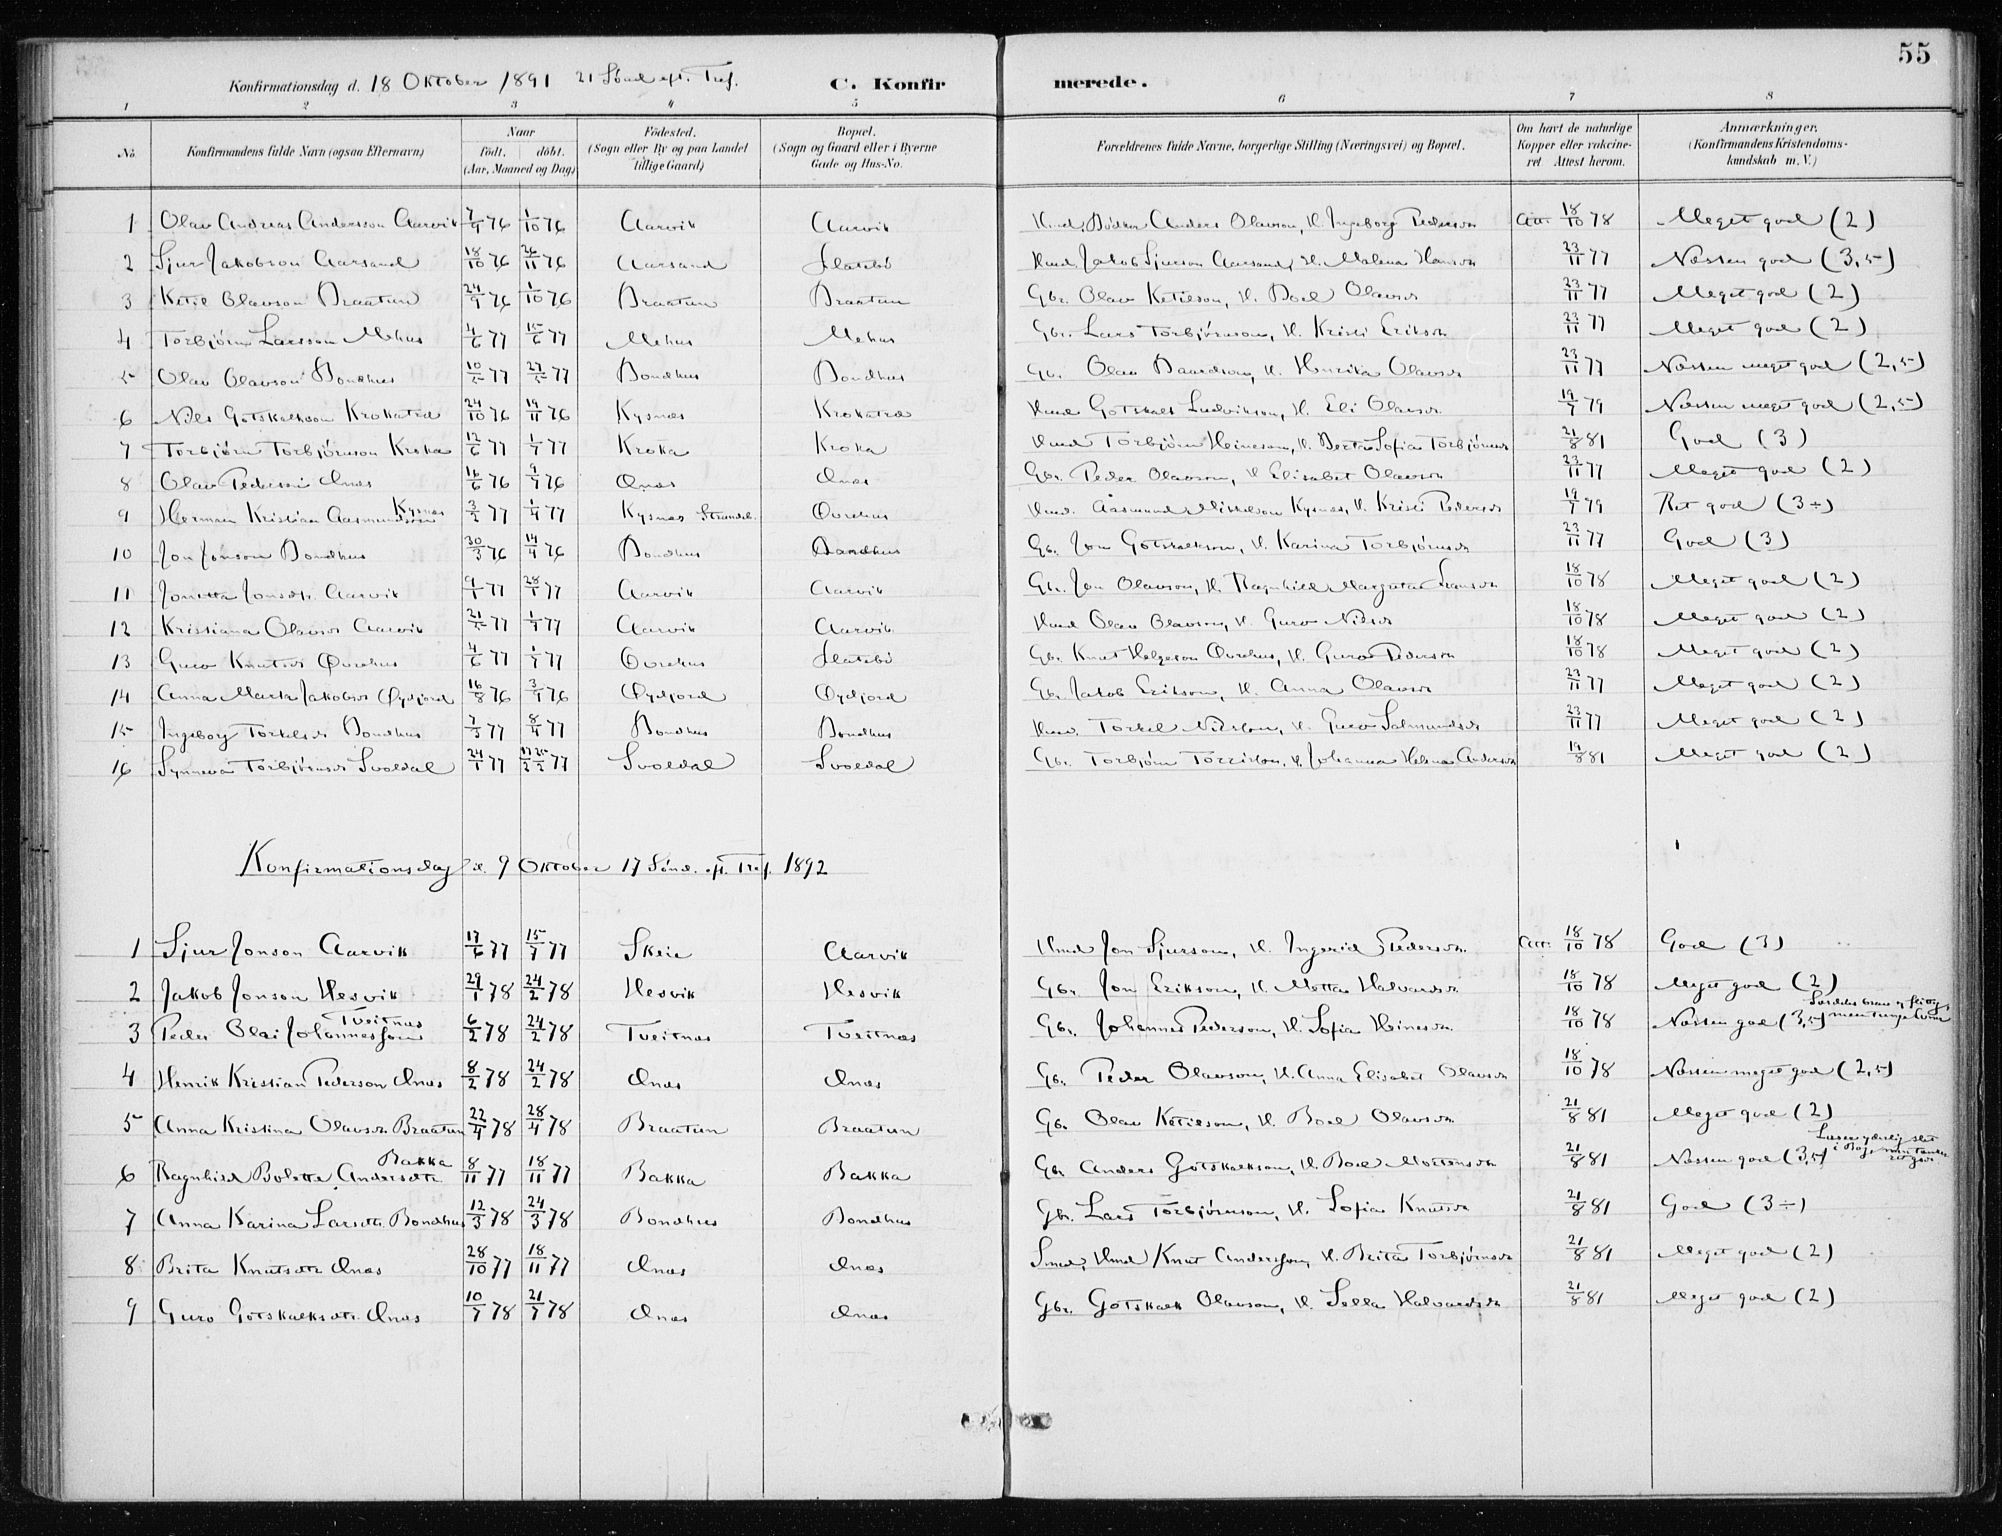 55
Konfirmationsdag d. 18 Oktober 1891 21 Sönd eft. Tref. C. Konfir merede.
1 2 3 4 5 6 7 8
No. Konfirmandens fulde Navn (ogsaa Efternavn) Naar födt. döbt. (Aar, Maaned og Dag) Födested. (Sogn eller By og paa Landet tillige Gaard) Bopæl. (Sogn og Gaard eller i Byerne Gade og Hus-No. Forældrenes fulde Navne, borgerlige Stilling (Næringsvei) og Bopæl. Om havt de naturlige Kopper eller vakcineret Attest herom. Anmærkninger. (Konfirmandens Kristendomskundskab m. V.)
1 Olav Andreas Andersson Aarvik 7/9 76 1/10 76 Aarvik Aarvik Hmd. Bödker Anders Olavson, H. Ingeborg Pedersdr Att. 18/10 78 Meget god (2)
2 Sjur Jakobson Aarsand 18/10 76 26/11 76 Aarsand Flatebö Hmd. Jakob Sjurson Aarsand, H. Malena Hansdr 23/11 77 Næsten god (3,5)
3 Ketil Olavson Braatun 24/9 76 1/10 76 Braatun Braatun Gbr. Olav Ketilson, H. Boel Olavsdr 23/11 77 Meget god (2)
4 Torbjörn Larsson Mehus 4/6 77 15/6 77 Mehus Mehus Gbr. Lars Torbjörnson, H. Kristi Eriksdr 23/11 77 Meget god (2)
5 Olav Olavson Bondhus 10/5 77 27/5 77 Bondhus Bondhus Gbr. Olav Baardson, H. Henrika Olavsdr 23/11 77 Næsten meget god (2,5)
6 Nils Gotskalkson Krokatræ 24/10 76 19/11 76 Kysnæs Krokatræ Hmd Gotskalk Ludvikson, H. Eli Olavsdr 19/7 79 Næsten meget god (2,5)
7 Torbjörn Torbjörnson Kroka 12/6 77 1/7 77 Kroka Kroka Hmd Torbjörn Heineson, H. Berta Sofia Torbjörnsdr 21/8 81 God (3)
8 Olav Pederson Ænæs 16/6 76 9/7 76 Ænæs Ænæs Gbr. Peder Olavson, H Elisabet Olavsdr 23/11 77 Meget god (2)
9 Herman Kristian Aasmundson Kysnæs 3/2 77 1/4 77 Kysnæs Strandeb. Ovrehus Hmd. Aasmund Mikkelson Kysnæs, H. Kristi Pedersdr 19/7 79 Ret god (3÷)
10 Jon Jonson Bondhus 30/3 76 14/4 76 Bondhus Bondhus Gbr. Jon Gotskalkson, H. Karina Torbjörnsdr 23/11 77 God (3)
11 Jonetta Jonsdtr. Aarvik 28/1 77 Aarvik Aarvik Gbr. Jon Olavson, H. Ragnhild Margreta 18/10 78 Meget god (2)
12 Kristiana Olavsdr Aarvik 21/5 77 1/7 77 Aarvik Aarvik Hmd Olav Olavson, H. Guro Nilsdr 18/10 78 Meget god (2)
13 Guro Knutsdr Øvrehus 4/6 77 1/7 77 Øvrehus Flatebö Gbr. Knut Helgeson Øvrehus, H. Guro Pedersdr 18/10 78 Meget god (2)
14 Anna Marta Jakobsdr Øydjord 16/8 76 3/9 76 Øydjord Øydjord Gbr. Jakob Erikson, H. Anna Olavsdr 23/11 77 Meget god (2)
15 Ingeborg Torkelsdr Bondhus 7/3 77 8/4 77 Bondhus Bondhus Hmd. Torkel Nilsson, H. Guro Salmundsdr 23/11 77 Meget god (2)
16 Synneva Torbjörnsdr Svoldal 24/1 77 25/2 77 Svoldal Svoldal Gbr. Torbjörn H. Johanna Helena Andersdr 19/8 81 Meget god (2)
Konfirmationsdag d. 9 Oktober 17 Sönd. eft. Tref. 1892
1 Sjur Jonson Aarvik 17/6 77 15/7 77 Skeie Aarvik Hmd Jon Sjurson, H. Ingerid Pedersdr. Att. 18/10 78 God (3)
2 Jakob Jonson Hesvik 29/1 78 24/2 78 Hesvik Hesvik Gbr. Jon Erikson, H. Metta Halvardsdr 18/10 78 Meget god (2)
3 Peder Olai Johannesson Tveitnæs 6/2 78 24/2 78 Tveitnæs Tveitnæs Gbr. Johannes Pederson, H. Sofia Heinesdr. 18/10 78 Næsten god (3,5)
4 Henrik Kristian Pederson Ænæs 8/2 78 24/2 78 Ænæs Ænæs Gbr. Peder Olavson, H. Anna Elisabet Olavsdr 18/10 78 Næsten meget god (2,5)
5 Anna Kristina Olavsdr. Braatun 22/4 78 28/4 78 Braatun Braatun Gbr. Olav Ketilson, H. Boel Olavsdr 21/8 81 Meget god (2)
6 Ragnhild Bolette Andersdtr Bakka 8/11 77 18/11 77 Bakka Bakka Gbr Anders Gotskalkson, H. Boel Mortensdr 21/8 81 Næsten god (3,5)
7 Anna Karina Larsdtr. Bondhus 12/3 78 24/3 78 Bondhus Bondhus Gbr. Lars Torbjörnson, H. Sofia Knutsdr 21/8 81 God (3÷)
8 Brita Knutsdtr Ænæs 28/10 77 18/11 77 Ænæs Ænæs Smed, Hmd Knut Andersson, H. Brita Torbjörnsdr 21/8 81 Meget god (2)
9 Guro Gotskalksdtr Ænæs 10/7 78 21/7 78 Ænæs Ænæs Gbr. Gotskalk Olavson, H. Sella Halvardsdr 21/8 81 Meget god (2)